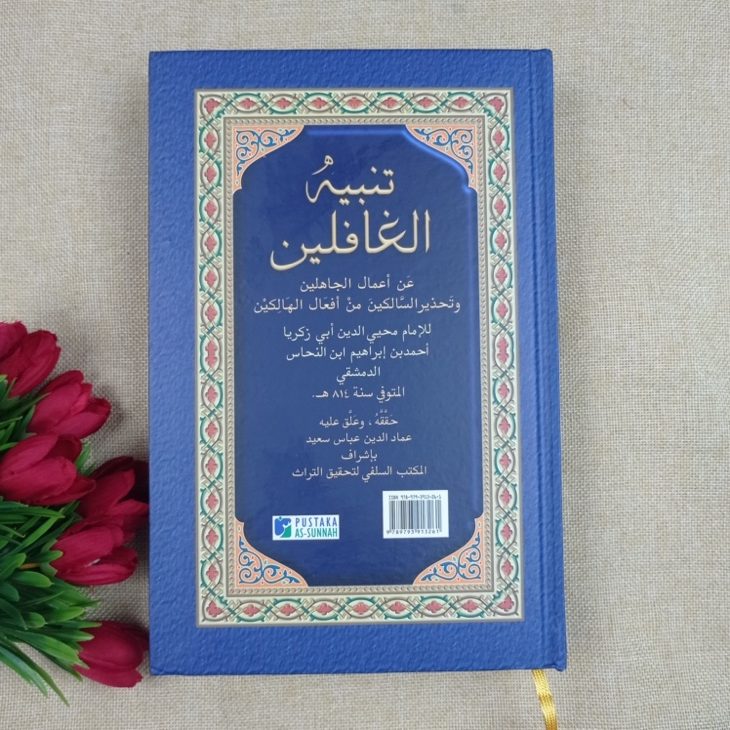 تنبيهُ
الغافلين
عَن أعمال الجاهلين
وتَحذير السَّالكينَ مِنْ أفعَال الهَالِكيْن
للإمام محيي الدين أبي زكريا
أحمدبن إبراهيم ابن النحاس
الدمشقي
المتوفي سنة ٨١٤ هـ.
حَقَّقَهُ ، وعَلَّق عليه
عماد الدين عباس سعيد
بإشراف
المكتب السلفي لتحقيق التراث
PUSTAKA
AS-SUNNAH
ISBN 978-979-3913-26-1
9 789793 913261